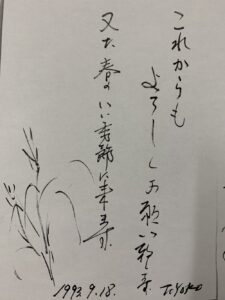 これからも
よろしくお願い致します
又、春のいい季節に来ます。
1993.9.18.